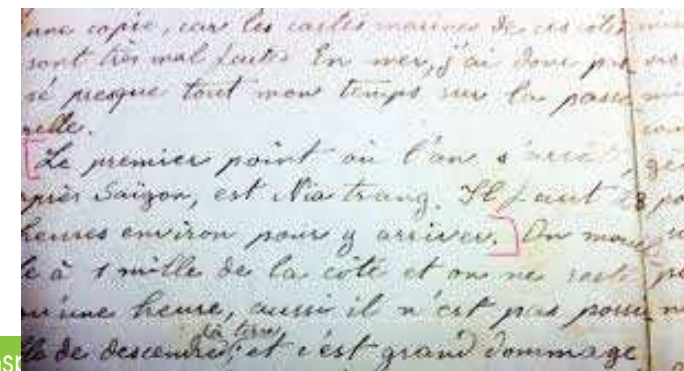 une copie, car les cartes marines de ces côtes
sont très mal faites. En mer, j'ai donc pas
sé presque tout mon temps sur la passe
relle.
[Le premier point où l'on s'arrête,
après Saïgon, est Nia trang. Il faut 28
heures environ pour y arriver.] On mouil
le à 1 mille de la côte et on ne reste
qu'une heure, aussi il n'est pas possi
ble de descendre à terre, et c'est grand dommage